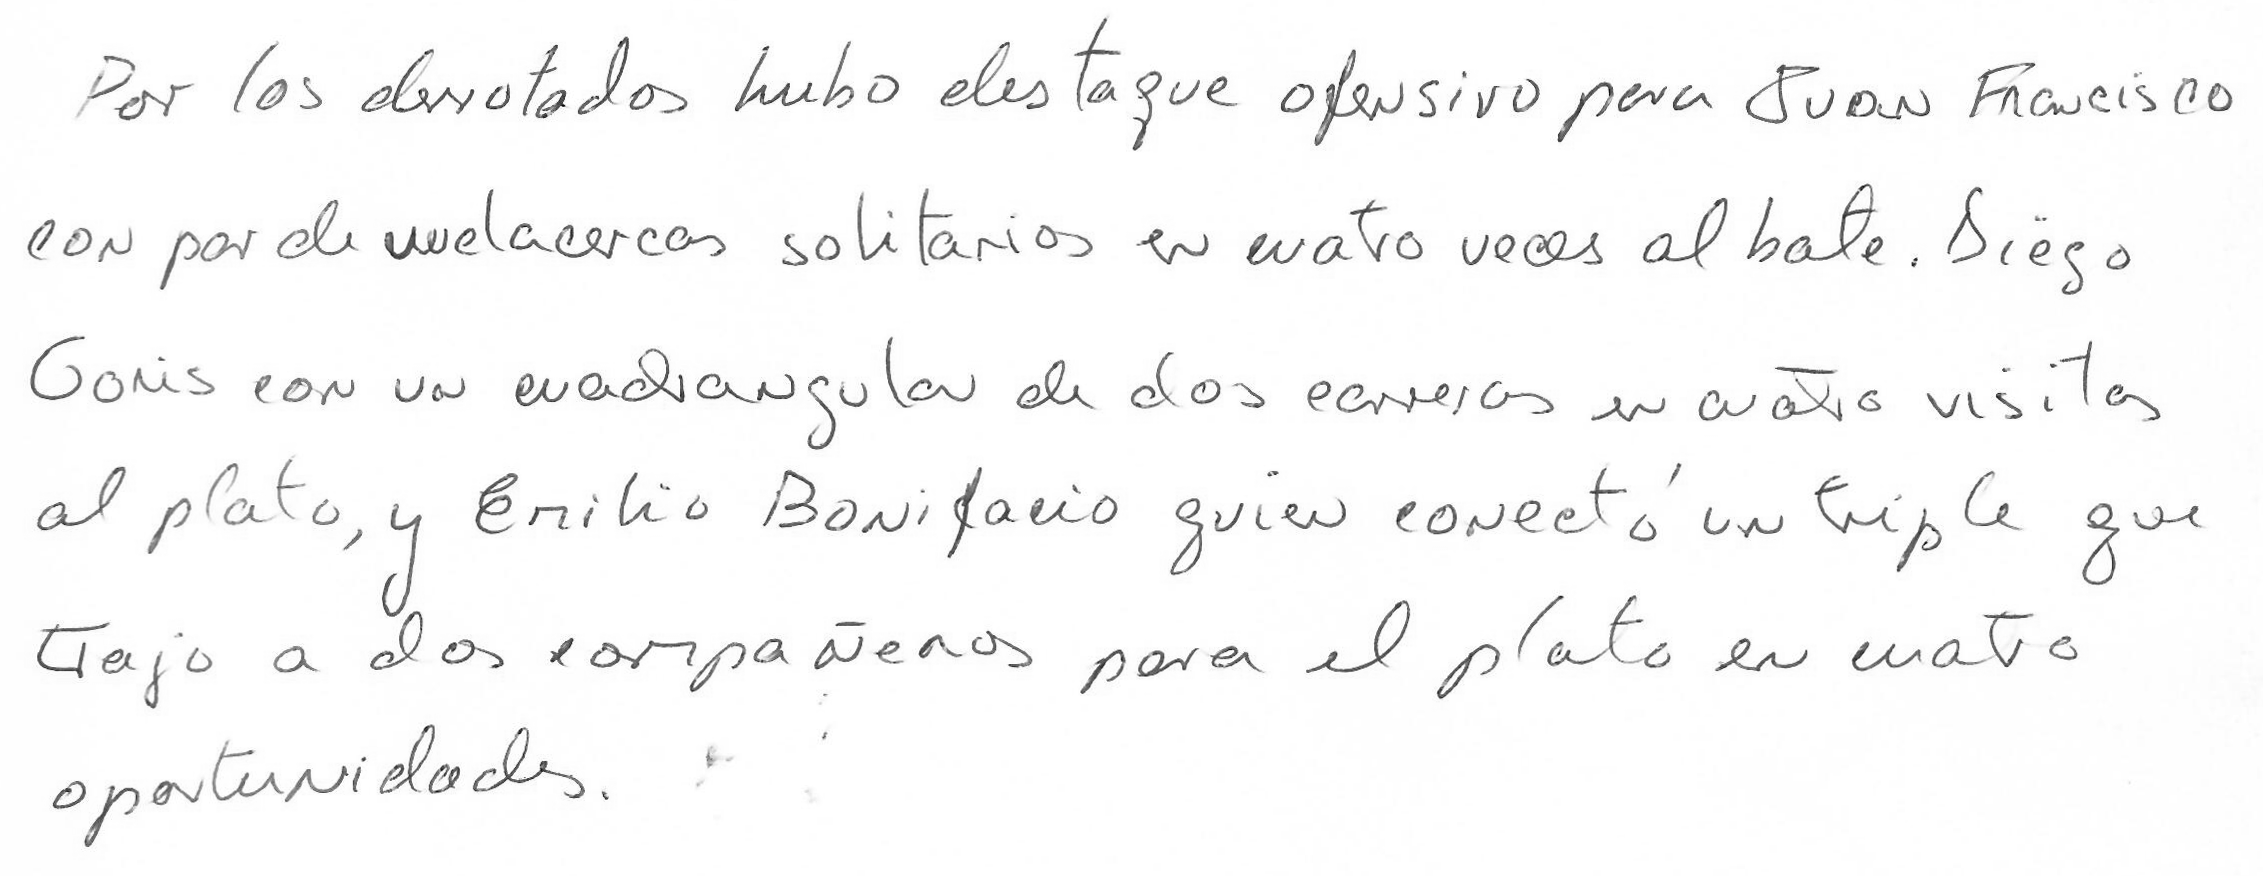 Por los derrotados hubo destaque ofensivo para Juan Francisco
con par de vuelacercas solitarios en cuatro veces al bate. Diego
Goris con un cuadrangular de dos carreras en cuatro visitas
al plato, y Emilio Bonifacio quien conectó un triple que
trajo a dos compañeros para el plato en cuatro
oportunidades.